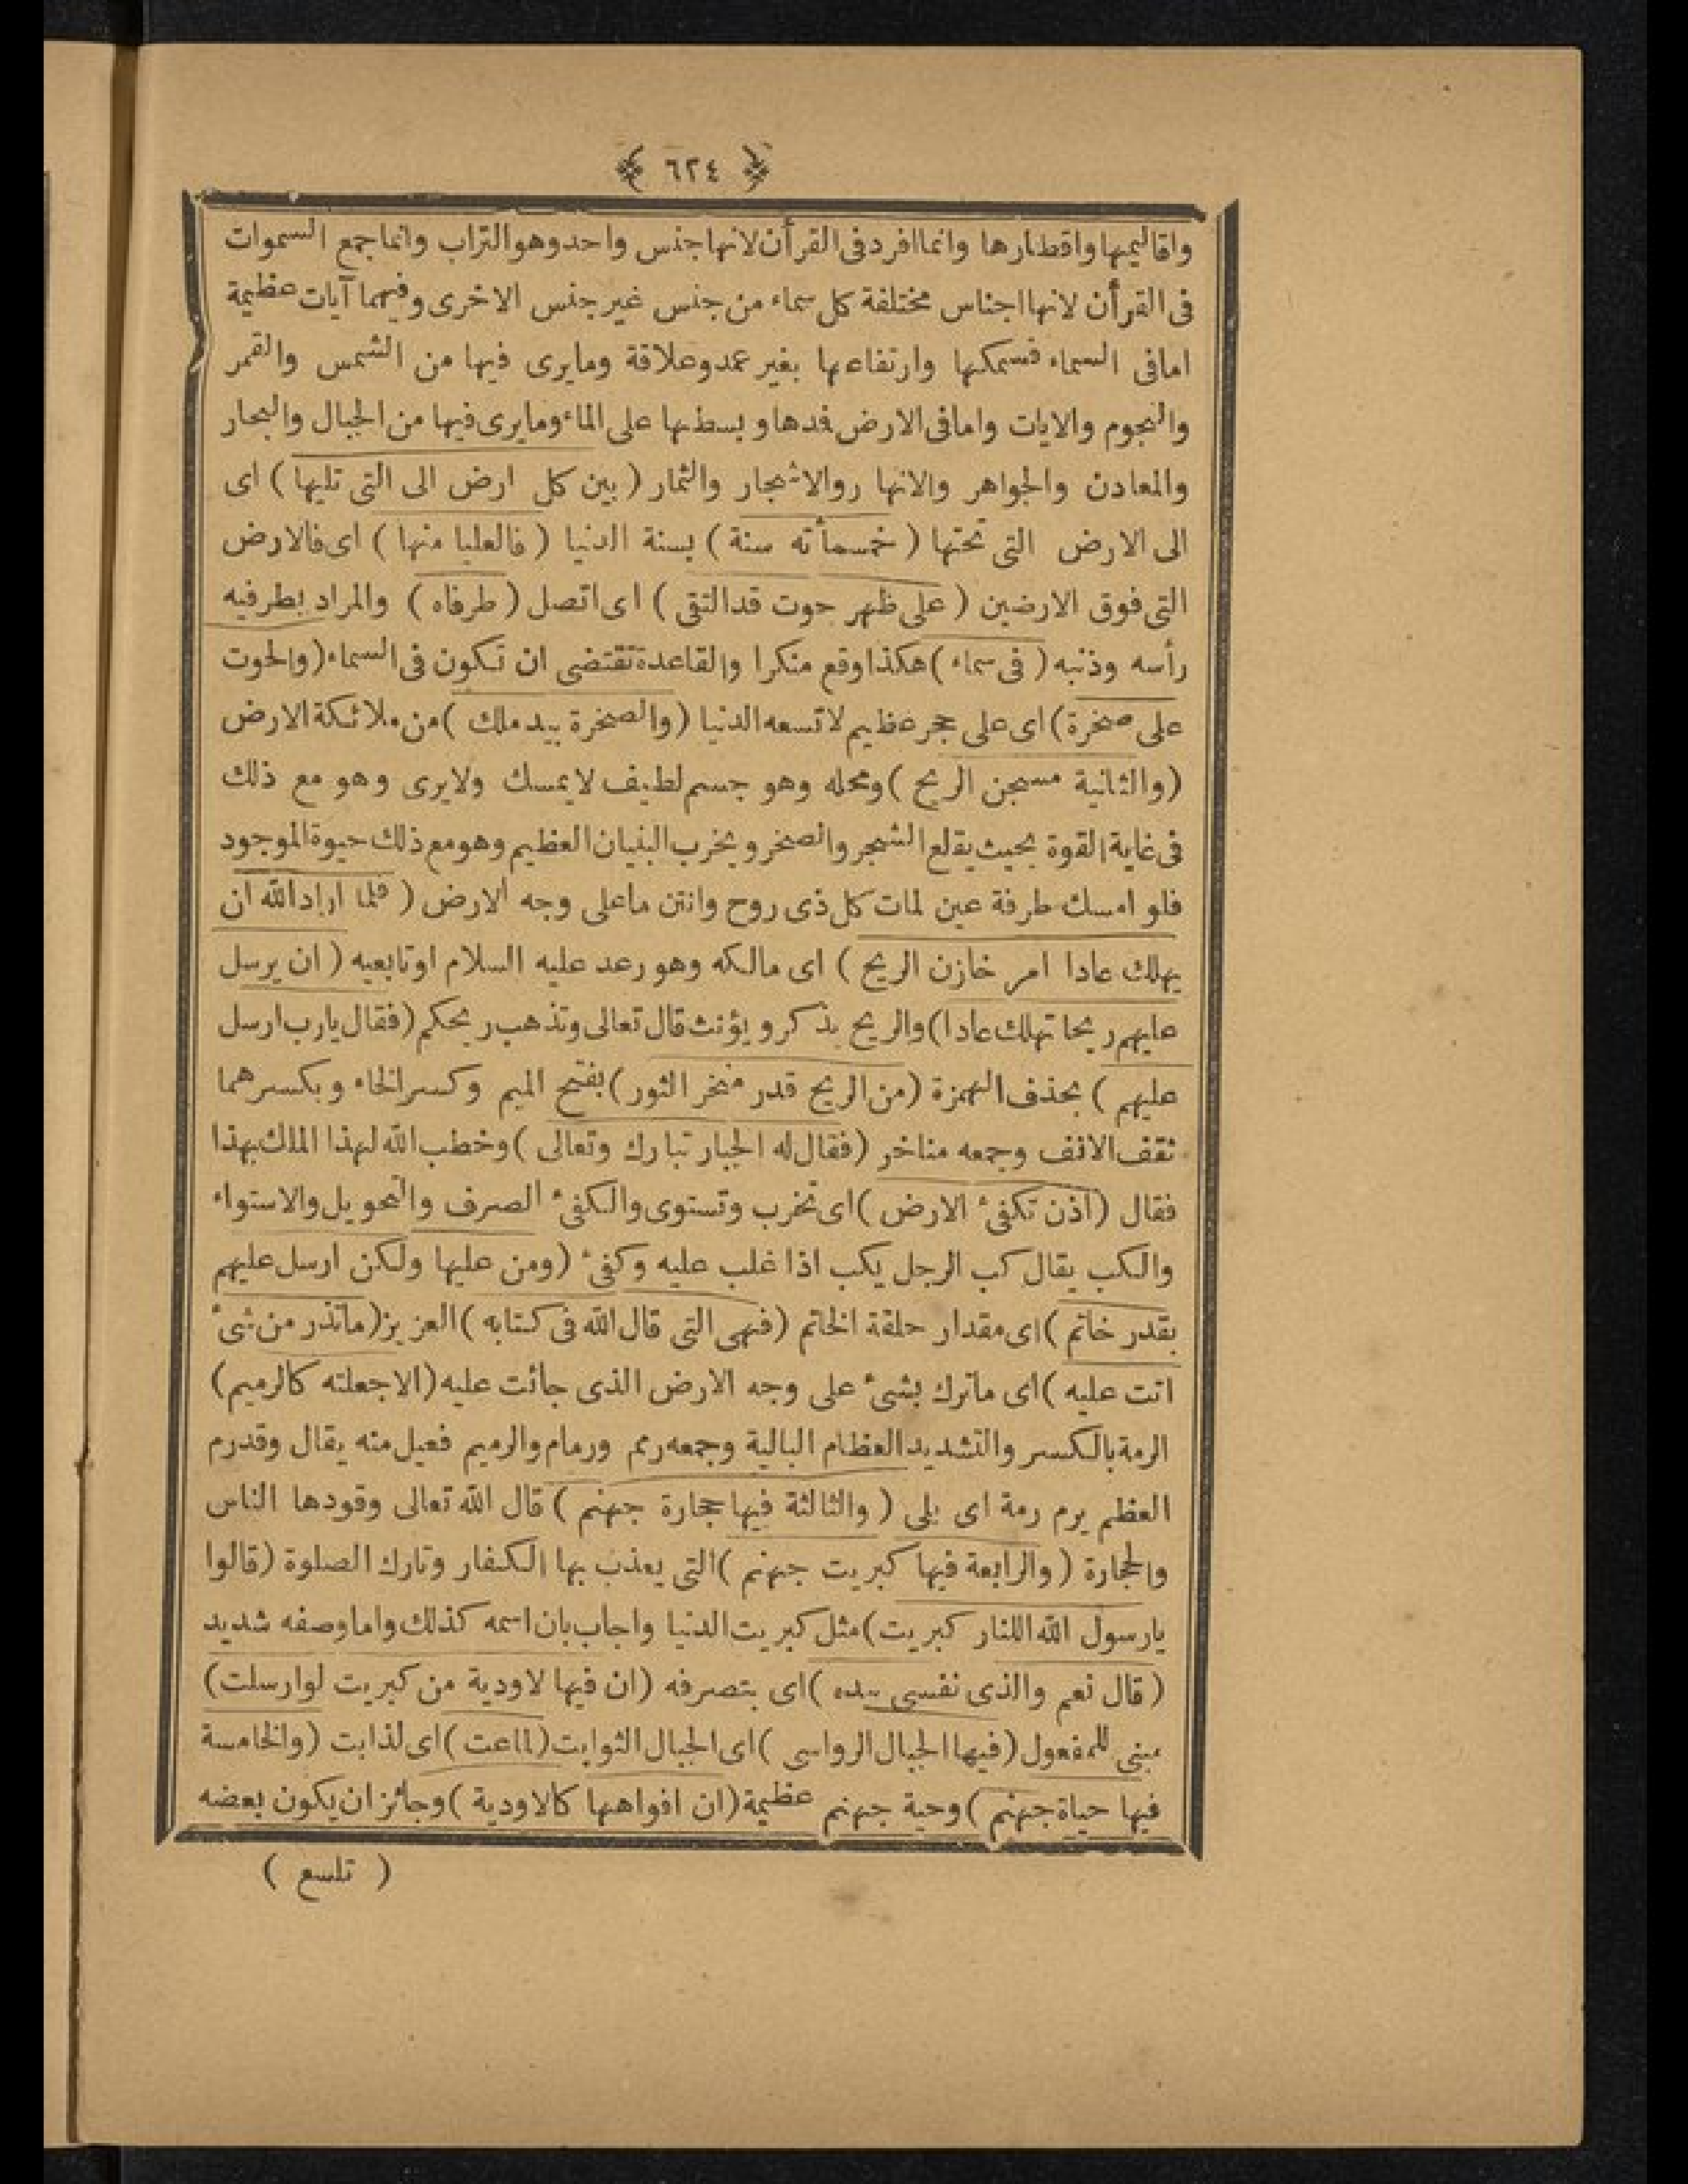 ﴿ ٦٢٤ ﴾
واقاليمها واقطارها وانما افرد فى القرأن لانها جنس واحد وهو التراب وانما جمع السموات
فى القرأن لانها اجناس مختلفة كل سماء من جنس غير جنس الاخرى وفيهما آيات عظيمة
اما فى السماء فسمكها وارتفاعها بغير عمد وعلاقة وما يرى فيها من الشمس والقمر
والنجوم والايات واما فى الارض فدها وبسطها على الماء وما يرى فيها من الجبال والبحار
والمعادن والجواهر والانها روالاشجار والثمار (بين كل ارض الى التى تليها) اى
الى الارض التى تحتها (خمسمأته سنة) بسنة الدنيا (فالعليا منها) اى فالارض
التى فوق الارضين (على ظهر حوت قد التقى) اى اتصل (طرفاه) والمراد بطرفيه
رأسه وذنبه (فى سماء) هكذا وقع منكرا والقاعدة تقتضى ان تكون فى السماء (والحوت
على صخرة) اى على حجر عظيم لا تسعه الدنيا (والصخرة بيد ملك) من ملائكة الارض
(والثانية مسجن الريح) ومحله وهو جسم لطيف لا يمسك ولا يرى وهو مع ذلك
فى غاية القوة بحيث يقلع الشجر والصخر ويخرب البنيان العظيم وهو مع ذلك حيوة الموجود
فلو امسك طرفة عين لمات كل ذى روح وانتن ما على وجه الارض (فلما اراد الله ان
يهلك عادا امر خازن الريح) اى مالكه وهو رعد عليه السلام او تابعيه (ان يرسل
عليهم ريحا تهلك عادا) والريح يذكر ويؤنث قال تعالى وتذهب ريحكم (فقال يارب ارسل
عليهم) بحذف الهمزة (من الريح قدر منخر الثور) بفتح الميم وكسر الخاء وبكسرهما
نقف الانف وجمعه مناخر (فقال له الجبار تبارك وتعالى) وخطب الله لهذا الملك بهذا
فقال (اذن تكفىء الارض) اى تخرب وتستوى والكفىء الصرف والتحويل والاستواء
والكب يقال كب الرجل يكب اذا غلب عليه وكفىء (ومن عليها ولكن ارسل عليهم
بقدر خاتم) اى مقدار حلقة الخاتم (فهى التى قال الله فى كتابه) العزيز (ما تذر من شىء
اتت عليه) اى ماترك بشىء على وجه الارض الذى جائت عليه (الا جعلته كالرميم)
الرمة بالكسر والتشديد العظام البالية وجمعه رمم ورمام والرميم فعيل منه يقال وقدرم
العظم يرم رمة اى بلى (والثالثة فيها حجارة جهنم) قال الله تعالى وقودها الناس
والحجارة (والرابعة فيها كبريت جهنم) التى يعذب بها الكفار وتارك الصلوة (قالوا
يارسول الله اللنار كبريت) مثل كبريت الدنيا واجاب بان اسمه كذلك واما وصفه شديد
(قال نعم والذى نفسى بيده) اى بتصرفه (ان فيها لاودية من كبريت لو ارسلت)
مبنى للمفعول (فيها الجبال الرواسى) اى الجبال الثوابت (لماعت) اى لذابت (والخامسة
فيها حياة جهنم) وحية جهنم عظيمة (ان افواهها كالاودية) وجائز ان يكون بعضه
( تلسع )